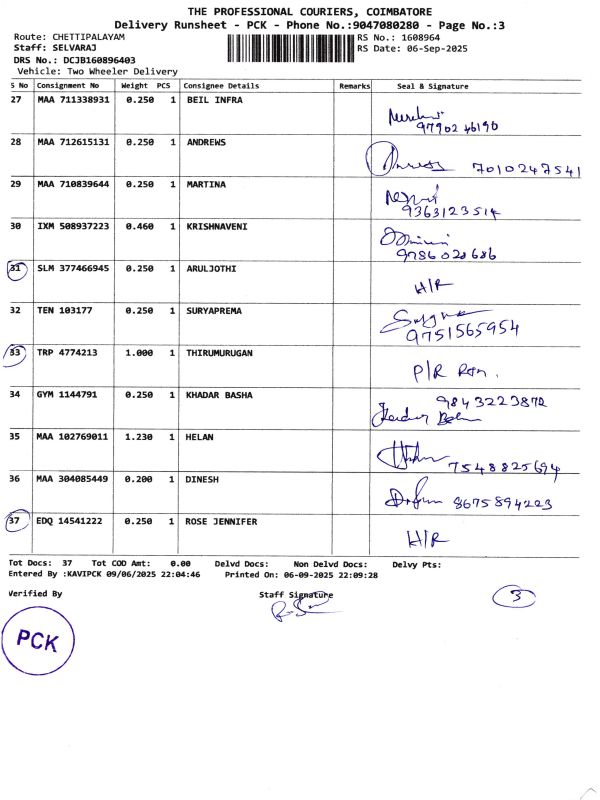 THE PROFESSIONAL COURIERS, COIMBATORE
Delivery Runsheet - PCK - Phone No.:9047080280 - Page No.:3
Route: CHETTIPALAYAM RS No.: 1608964
Staff: SELVARAJ RS Date: 06-Sep-2025
DRS No.: DCJB160896403
Vehicle: Two Wheeler Delivery
S No Consignment No Weight PCS Consignee Details Remarks Seal & Signature
27 MAA 711338931 0.250 1 BEIL INFRA
97902 46190
28 MAA 712615131 0.250 1 ANDREWS
7010247541
29 MAA 710839644 0.250 1 MARTINA
9363123514
30 IXM 508937223 0.460 1 KRISHNAVENI
9786028686
31 SLM 377466945 0.250 1 ARULJOTHI
H/R
32 TEN 103177 0.250 1 SURYAPREMA
9751565954
33 TRP 4774213 1.000 1 THIRUMURUGAN
P/R Rtn.
34 GYM 1144791 0.250 1 KHADAR BASHA
9843223872
35 MAA 102769011 1.230 1 HELAN
7548825694
36 MAA 304085449 0.200 1 DINESH
8675894223
37 EDQ 14541222 0.250 1 ROSE JENNIFER
H/R
Tot Docs: 37 Tot COD Amt: 0.00 Delvd Docs: Non Delvd Docs: Delvy Pts:
Entered By :KAVIPCK 09/06/2025 22:04:46 Printed On: 06-09-2025 22:09:28
Verified By Staff Signature
3
PCK